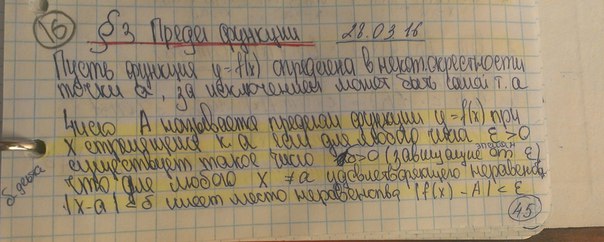 16 § 3 Предел функции 28.03.16
Пусть функция y=f(x) определена в некот. окрестности
точки a, за исключением может быть самой т. a
Число A называется пределом функции y=f(x) при
x стремящемся к a если для любого числа ε>0
эпсилон
существует такое число δ>0 (зависящие от ε)
что для любого x ≠ a удовлетворяющего неравенс
δ дельта
|x-a| < δ имеет место неравенства |f(x) - A| < ε
45